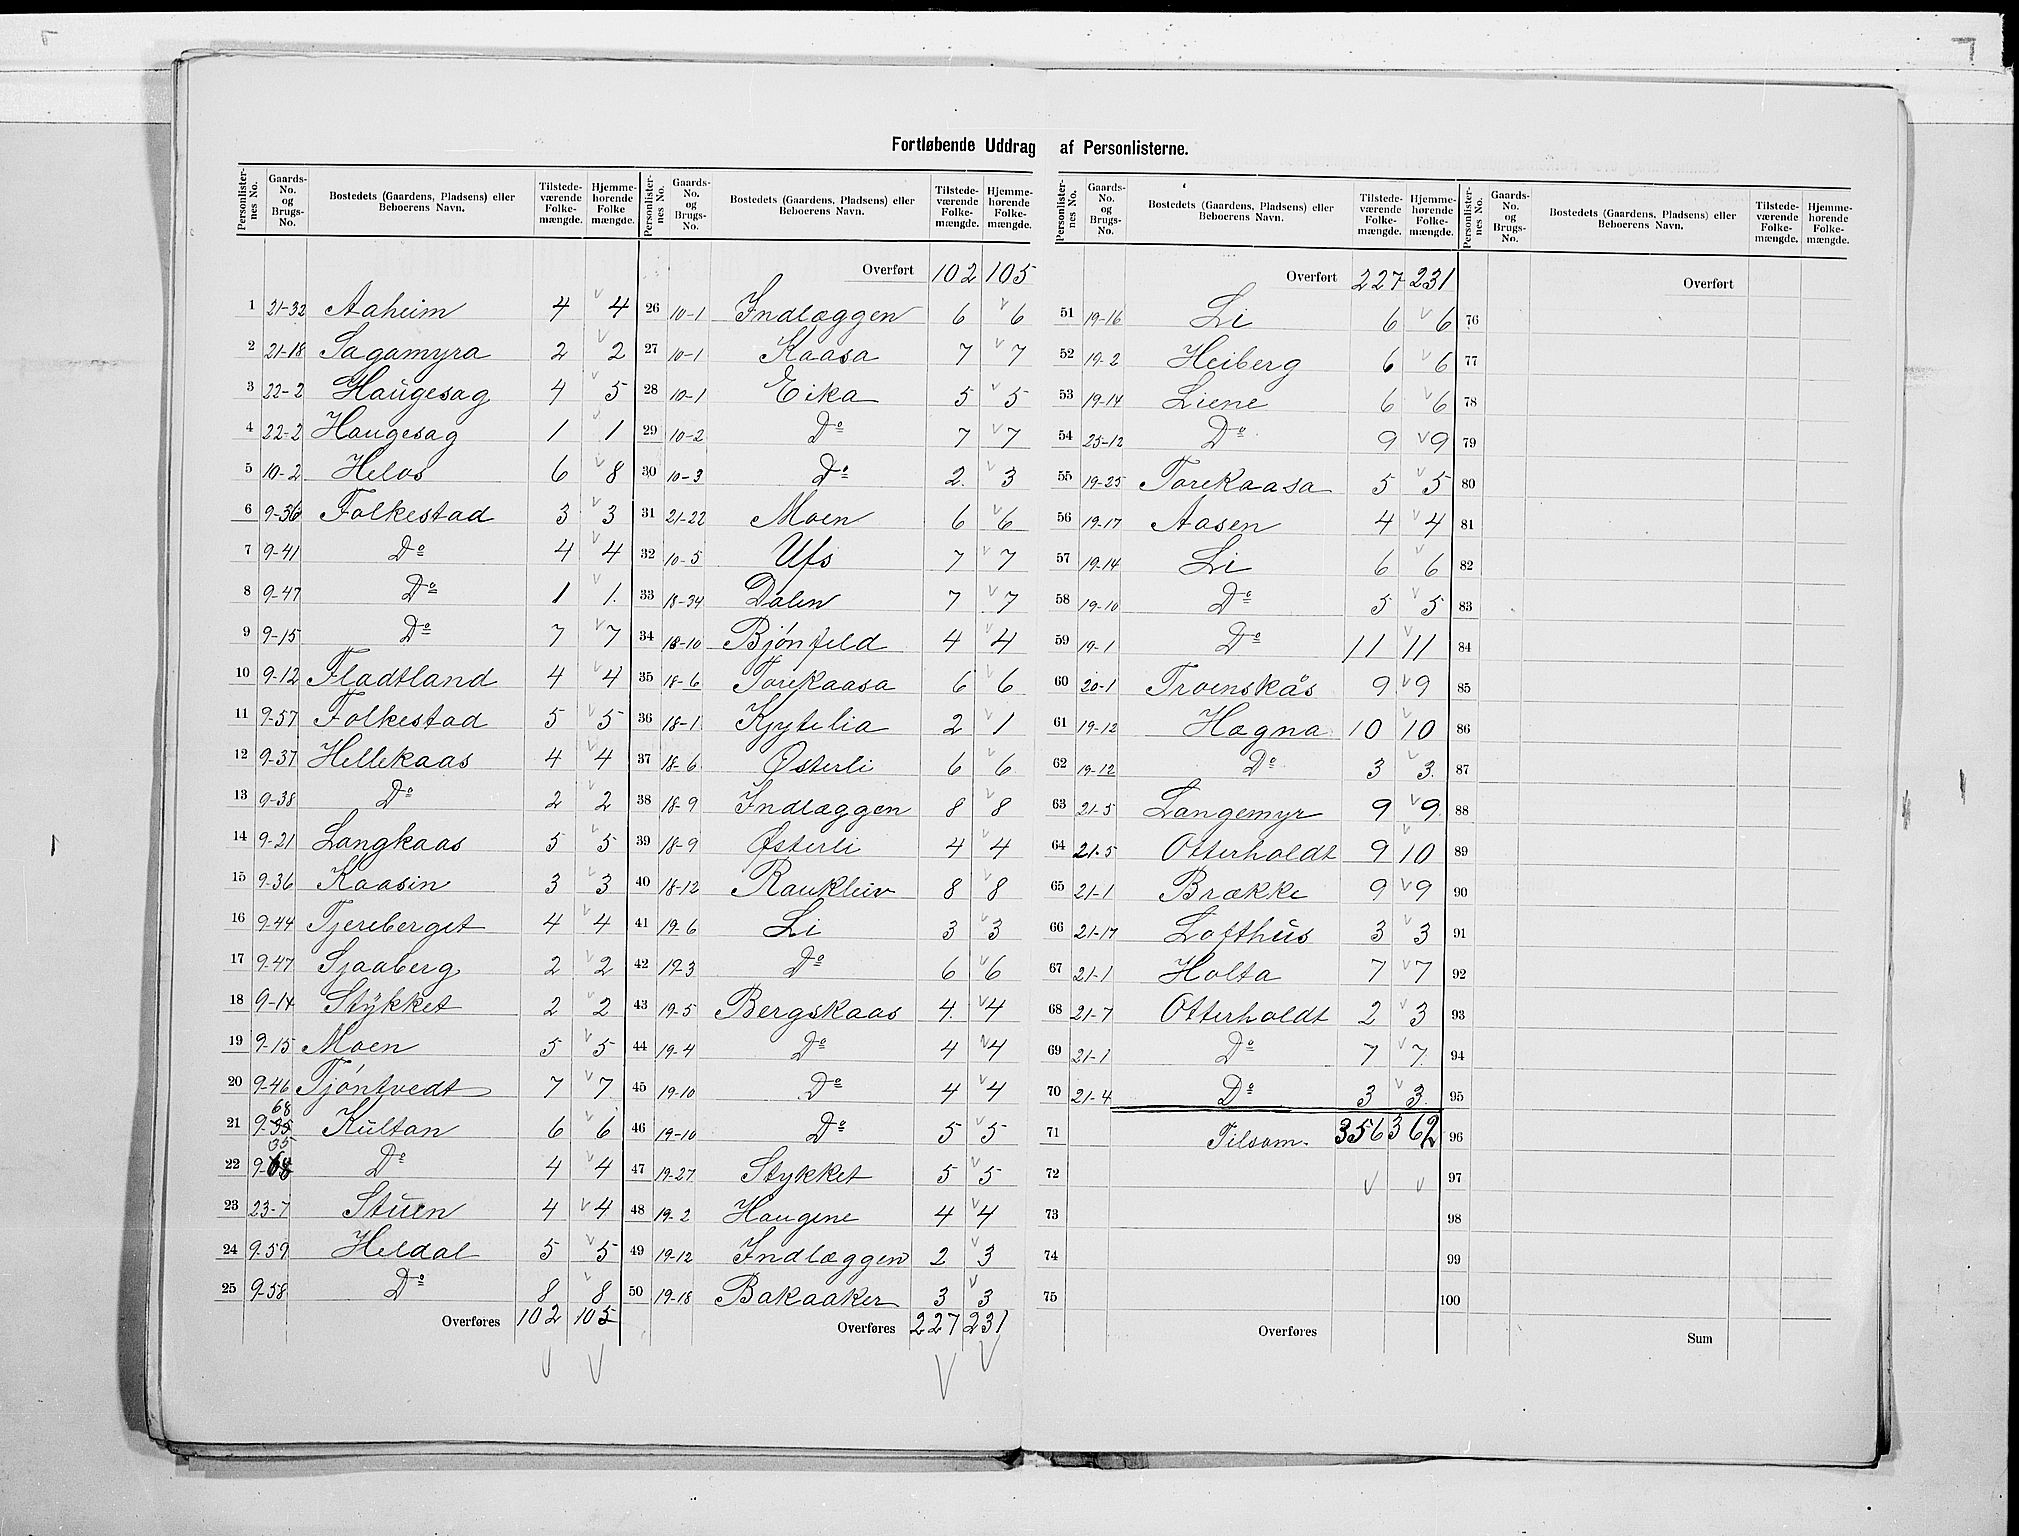 Fortløbende Uddrag af Personlisterne.
Personlister-nes No. Gaards-No. og Brugs-No. Bostedets (Gaardens, Pladsens) eller Beboerens Navn. Tilstede-værende Folke-mængde. Hjemme-hørende Folke mængde.
1 21-32 Aaheim 4 4
2 21-18 Sagamyra 2 2
3 22-2 Haugesag 4 5
4 22-2 Haugesag 1 1
5 10-2 Helos 6 8
6 9-36 Folkestad 3 3
7 9-41 Do 4 4
8 9-47 Do 1 1.
9 9-15 Do 7 7
10 9-12 Fladtland 4 4
11 9-57 Folkestad 5 5
12 9-37 Hellekaas 4 4
13 9-38 Do 2 2
14 9-21 Langkaas 5 5
15 9-36 Kaasin 3 3
16 9-44 Tjereberget 4 4
17 9-47 Sjaaberg 2 2
18 9-14 Stykket 2 2
19 9-15 Moen 5 5
20 9-46 Tjöntvedt 7 7
21 9-68 Kultan 6 6
22 9-35 Do 4 4
23 23-7 Stuen 4 4
24 9-59 Heldal 5 5
25 9-58 Do 8 8
Overføres 102 105
Personlister-nes No. Gaards-No. og Brugs-No. Bostedets (Gaardens, Pladsens) eller Beboerens Navn. Tilstede-værende Folke-mængde. Hjemme-hørende Folke-mængde.
Overført 102 105
26 10-1 Indlæggen 6 6
27 10-1 Kaasa 7 7
28 10-1 Eika 5 5
29 10-2 Do 7 7
30 10-3 Do 2. 3
31 21-22 Moen 6 6
32 10-5 Ufs 7 7
33 18-34 Dalen 7 7
34 18-10 Bjönfeld 4 4
35 18-6 Torekaasa 6 6
36 18-1 Kjytelia 2 1
37 18-6 Østerli 6 6
38 18-9 Indlæggen 8 8
39 18-9 Østerli 4 4
40 18-12 Raukleiv 8 8
41 19-6 Li 3 3
42 19-3 Do 6 6
43 19-5 Bergskaas 4 4
44 19-4 Do 4 4
45 19-10 Do 4 4
46 19-10 Do 5 5
47 19-27 Stykket 5 5
48 19-2 Haugene 4 4
49 19-12 Indlæggen 2 3
50 19-18 Bakaaker 3 3
Overføres 227 231
Personlister-nes No. Gaards-No. og Brugs-No. Bostedets (Gaardens, Pladsens) eller Beboerens Navn. Tilstede-værende Folke-mængde. Hjemme-hørende Folke-mængde.
Overført 227 231
51 19-16 Li 6 6
52 19-2 Heiberg 6 6
53 19-14 Liene 6 6
54 25-12 Do 9 9
55 19-25 Torekaasa 5 5
56 19-17 Aasen 4 4
57 19-14 Li 6 6
58 19-10 Do 5 5
59 19-1 Do 11 11
60 20-1 Troenskås 9 9
61 19-12 Hagna 10 10
62 19-12 Do 3 3.
63 21-5 Langemyr 9 9
64 21-5 Otterholdt 9 10
65 21-1 Brække 9 9
66 21-17 Lofthus 3 3
67 21-1 Holta 7 7
68 21-7 Otterholdt 2 3
69 21-1 Do 7 7.
70 21-4 Do 3 3.
71 Tilsam. 356 362
72
73
74
75
Overføres
Personlister-nes No. Gaards-No. og Brugs-No. Bostedets (Gaardens, Pladsens) eller Beboerens Navn. Tilstede-værende Folke-mængde. Hjemme-hørende Folke-mængde.
Overført
76
77
78
79
80
81
82
83
84
85
86
87
88
89
90
91
92
93
94
95
96
97
98
99
100
Sum